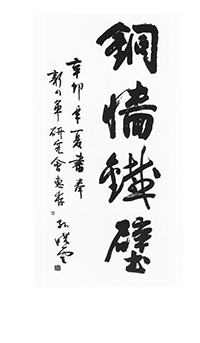 銅墻鐵壁
辛卯年夏書奉
新四軍研究會惠存
孫曉雲